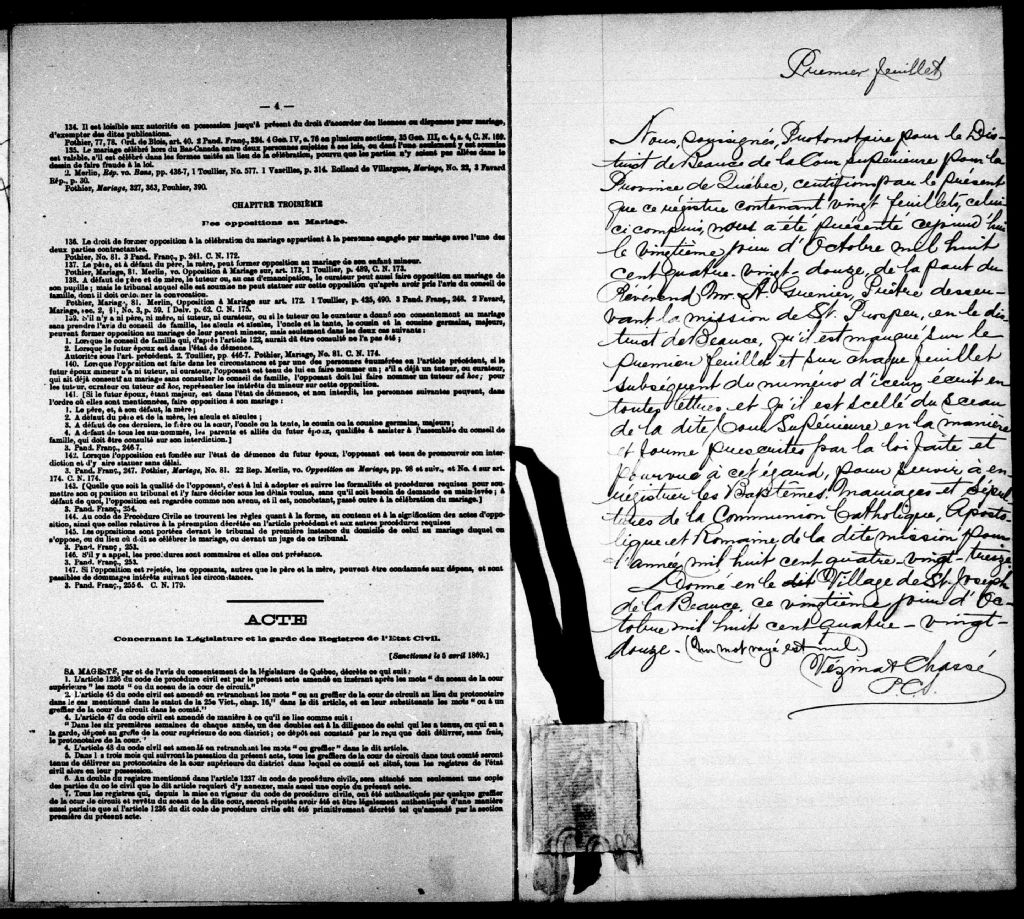 — 4 —
134. Il est loisible aux autorités en possession jusqu'à présent du droit d'accorder des licences ou dispenses pour mariage,
d'exempter des dites publications.
Pothier, 77, 78. Ord. de Blois, art. 40. 2 Pand. Franç., 234. 4 Geo. IV, c. 76 en plusieurs sections, 35 Geo. III, c. 4, s. 4, C. N. 169.
135. Le mariage célébré hors du Bas-Canada entre deux personnes sujettes à ses lois, ou dont l'une seulement y est soumise
est valable, s'il est célébré dans les formes usités au lieu de la célébration, pourvu que les parties n'y soient pas allées dans le
dessin de faire fraude à la loi.
2. Merlin, Rép. vo. Bans, pp. 436-7, 1 Toullier, No. 577. 1 Vazeilles, p. 314. Rolland de Villargues, Mariage, No. 23, 3 Favard
Rép., p. 30.
Pothier, Mariage, 327, 363, Pouhier, 390.
CHAPITRE TROISIÈME
Des oppositions au Mariage.
136. Le droit de former opposition à la célébration du mariage appartient à la personne engagée par mariage avec l'une des
deux parties contractantes.
Pothier, No. 81. 3 Pand. Franç., p. 241. C. N. 172.
137. Le père, et à défaut du père, la mère, peut former opposition au mariage de son enfant mineur.
Pothier, Mariage, 81. Merlin, vo. Opposition à Mariage sur art. 173, 1 Toullier, p. 489, C. N. 173.
138. A défaut de père et de mère, le tuteur, ou au cas d'émancipation, le curateur peut aussi faire opposition au mariage de
son pupille; mais le tribunal auquel elle est soumise ne peut statuer sur cette opposition qu'après avoir pris l'avis du conseil de
famille, dont il doit ordonner la convocation.
Pothier, Mariage, 81. Merlin, Opposition à Mariage sur art. 172. 1 Toullier, p. 425, 490. 3 Pand. Franç., 248. 2 Favard,
Mariage, sec. 2, §1, No. 3, p. 59. 1 Delv. p. 62. C. N. 175.
139. S'il n'y a ni père, ni mère, ni tuteur, ni curateur, ou si le tuteur ou le curateur a donné son consentement au mariage
sans prendre l'avis du conseil de famille, les aïeuls et aïeules, l'oncle et la tante, le cousin et la cousine germains, majeurs,
peuvent former opposition au mariage de leur parent mineur, mais seulement dans les deux cas suivants :
1. Lorsque le conseil de famille qui, d'après l'article 122, aurait dû être consulté ne l'a pas été ;
2. Lorsque le futur époux est dans l'état de démence.
Autorités sous l'art. précédent. 2. Toullier, pp. 446-7. Pothier, Mariage, No. 81. C. N. 174.
140. Lorsque l'opposition est faite dans les circonstances et par une des personnes énumérées en l'article précédent, si le
futur époux mineur n'a ni tuteur, ni curateur, l'opposant est tenu de lui en faire nommer un ; s'il a déjà un tuteur, ou curateur,
qui ait déjà consenti au mariage sans consulter le conseil de famille, l'opposant doit lui faire nommer un tuteur ad hoc ; pour
les tuteur, curateur ou tuteur ad hoc, représenter les intérêts du mineur sur cette opposition.
141. [Si le futur époux, étant majeur, est dans l'état de démence, et non interdit, les personnes suivantes peuvent, dans
l'ordre où elles sont mentionnées, faire opposition à son mariage :
1. Le père, et, à son défaut, la mère ;
2. A défaut du père et de la mère, les aïeuls et aïeules ;
3. A défaut de ces derniers, le frère ou la sœur, l'oncle ou la tante, le cousin ou la cousine germains, majeurs ;
4. A défaut de tous les sus-nommés, les parents et alliés du futur époux, qualifiés à assister à l'assemblée du conseil de
famille, qui doit être consulté sur son interdiction.]
3. Pand. Franç., 246-7.
142. Lorsque l'opposition est fondée sur l'état de démence du futur époux, l'opposant est tenu de promouvoir son inter-
diction et d'y faire statuer sans délai.
3. Pand. Franç., 247. Pothier, Mariage, No. 81. 22 Rep. Merlin, vo. Opposition au Mariage, pp. 98 et suiv., et No. 4 sur art.
174. C. N. 174.
143. [Quelle que soit la qualité de l'opposant, c'est à lui à adopter et suivre les formalités et procédures requises pour sou-
mettre son opposition au tribunal et d'y faire décider sous les délais voulus, sans qu'il soit besoin de demande en main-levée ; à
défaut de quoi, l'opposition est regardée comme non avenu, et il est, nonobstant, passé outre à la célébration du mariage.]
3. Pand. Franç., 254.
144. Au Code de Procédure se trouvent les règles quant à la forme, au contenu et à la signification des actes d'oppo-
sition, ainsi que celles relatives à la péremption décrétée en l'article précédent et aux autres procédures requises
145. Les oppositions sont portées devant le tribunal de première instance du domicile de celui au mariage duquel on
s'oppose, ou du lieu où doit se célébrer le mariage, ou devant un juge de ce tribunal.
3. Pand. Franç, 253.
146. S'il y a appel, les procédures sont sommaires et elles ont préséance.
3. Pand. Franç., 253.
147. Si l'opposition est rejetée, les opposants, autres que le père et la mère, peuvent être condamnés aux dépens, et sont
passibles de dommages intérêts suivant les circonstances.
3. Pand. Franç., 255-6. C. N. 179.
ACTE
Concernant la Législature et la garde des Registres de l'Etat Civil.
[Sanctionné le 5 avril 1869.]
SA MAGESTÉ, par et de l'avis du consentement de la législature de Québec, décrète ce qui suit :
1. L'article 1236 du code de procédure civil est par le présent acte amendé en insérant après les mots " du sceau de la cour
supérieure " les mots " ou du sceau de la cour de circuit."
2. L'article 45 du code civil est amendé en retranchant les mots " ou au greffier de la cour de circuit au lieu du protonotaire
dans le cas mentionné dans le statut de la 25e Vict., chap. 16," dans le dit article, et en leur substituant les mots " ou à un
greffier de la cour de circuit dans le comté."
4. L'article 47 du code civil est amendé de manière à ce qu'il se lise comme suit :
" Dans les six premières semaines de chaque année, un des doubles est à la diligence de celui qui les a tenus, ou qui en a
la garde, déposé au greffe de la cour supérieure de son district ; ce dépôt est constaté par le reçu que doit délivrer, sans frais,
le protonotaire de la cour."
4. L'article 48 du code civil est amendé en retranchant les mots " ou greffier " dans le dit article.
5. Dans les trois mois qui suivront la passation du présent acte, tous les greffiers de la cour de circuit dans tout comté seront
tenus de délivrer au protonotaire de la cour supérieure du district dans lequel ce comté est situé, tous les registres de l'état
civil alors en leur possession.
6. Au double du registre mentionné dans l'article 1237 du code de procédure civile, sera attaché non seulement une copie
des parties du code civil que le dit article requiert d'y annexer, mais aussi une copie du présent acte.
7. Tous les registres qui, depuis la mise en vigueur du code de procédure civile, ont été authentiqués par quelque greffier
de la cour de circuit et revêtu du sceau de la dite cour, seront réputés avoir été et être légalement authentiqués d'une manière
aussi parfaite que si l'article 1236 du dit code de procédure civile eût été primitivement décrété tel qu'amendé par la section
première du présent acte.
Premier feuillet
Nous, soussignés, Protonotaire pour le Dis-
trict de Beauce de la Cour supérieure pour la
Province de Québec, certifions par le présent
que ce régistre contenant vingt feuillets, celui
ci compris, nous a été présenté cejourd'hui
le vingtième jour d'Octobre mil huit
cent quatre-vingt-douze, de la part du
Révérend Mr. A. Grenier, Prêtre desser-
vant la mission de St. Prosper, en le dis-
trict de Beauce, qu'il est marqué sur le
premier feuillet et sur chaque feuillet
subséquent du numéro d'iceux écrit en
toutes lettres, et qu'il est scellé du sceau
de la dite Cour Supérieure en la manière
et forme prescrites par la loi faite et
pourvue à cet égard, pour servir à en
régistrer les Baptêmes, mariages et sépul
tures de la Communion Catholique, Aposto
lique et Romaine de la dite mission pour
l'année mil huit cent quatre-vingt-treize.
Donné en le dit Village de St Joseph
de la Beauce, ce vingtième jour d'Oc-
tobre mil huit cent quatre-vingt-
douze.- (Un mot rayé est nul.)
Vézina & Chassé
P.C.S.